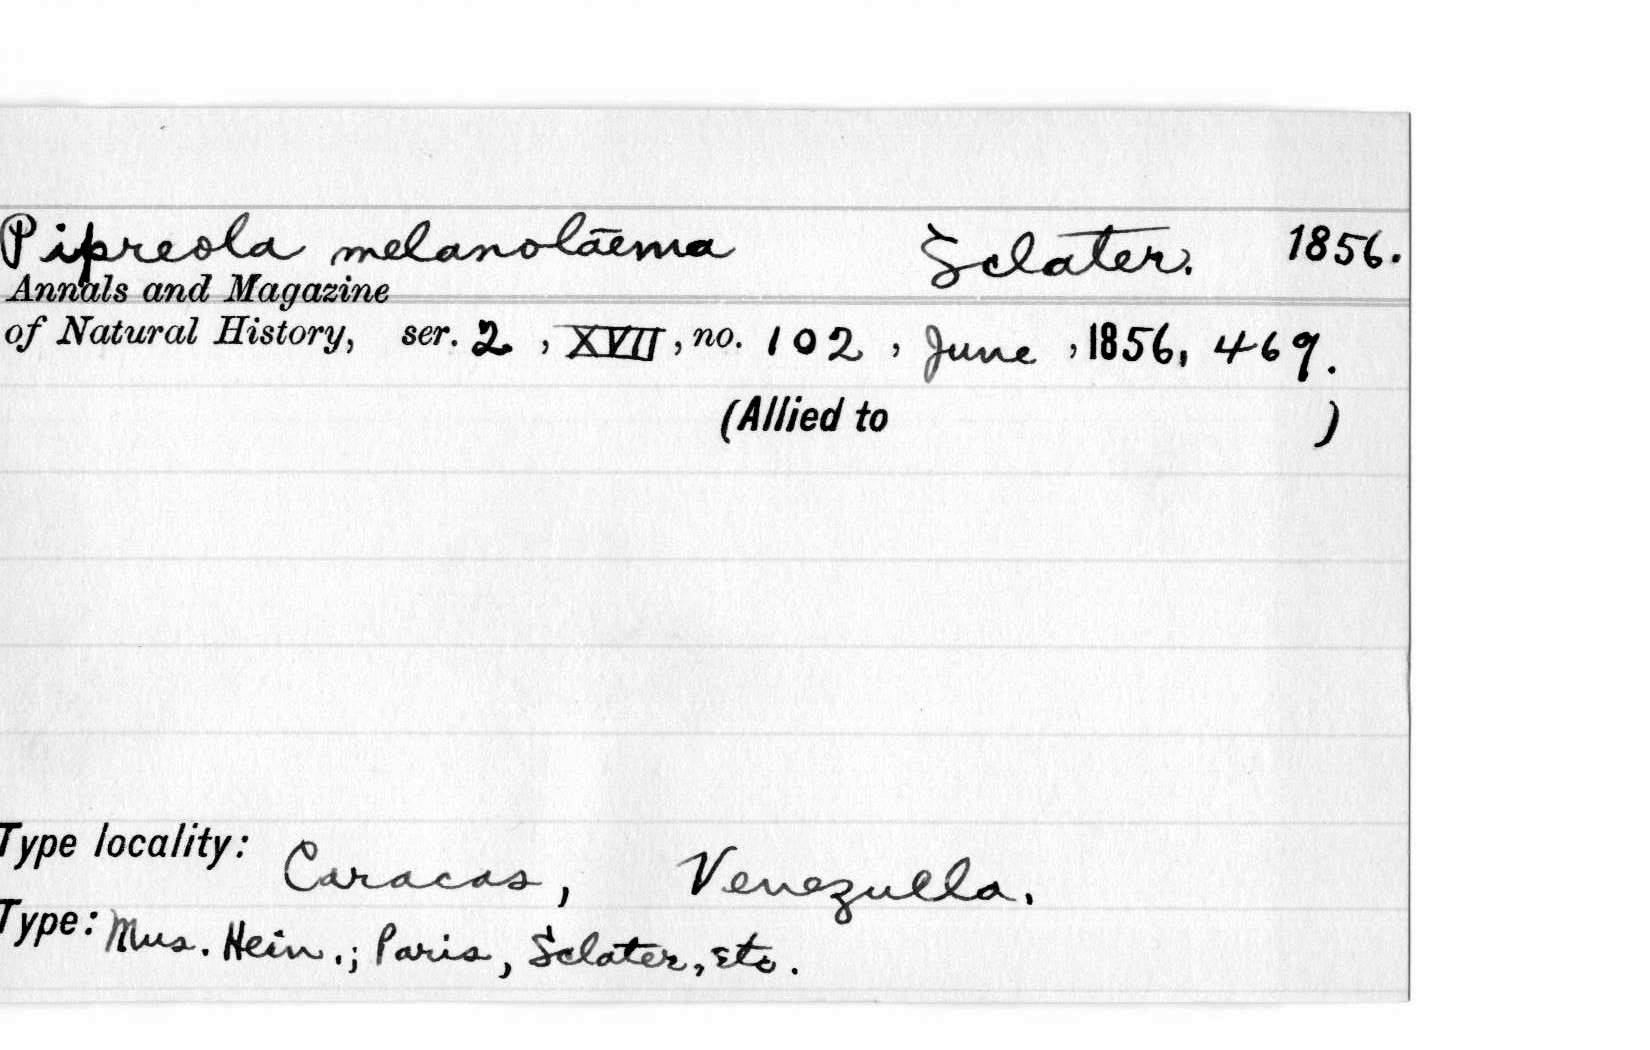 Pipreola melanolaema Sclater. 1856.
Annals and Magazine
of Natural History, ser. 2, XVII, no. 102, June, 1856, 469.
(Allied to )
Type locality: Caracas, Venezuella.
Type: Mus. Hein.; Paris, Sclater, etc.